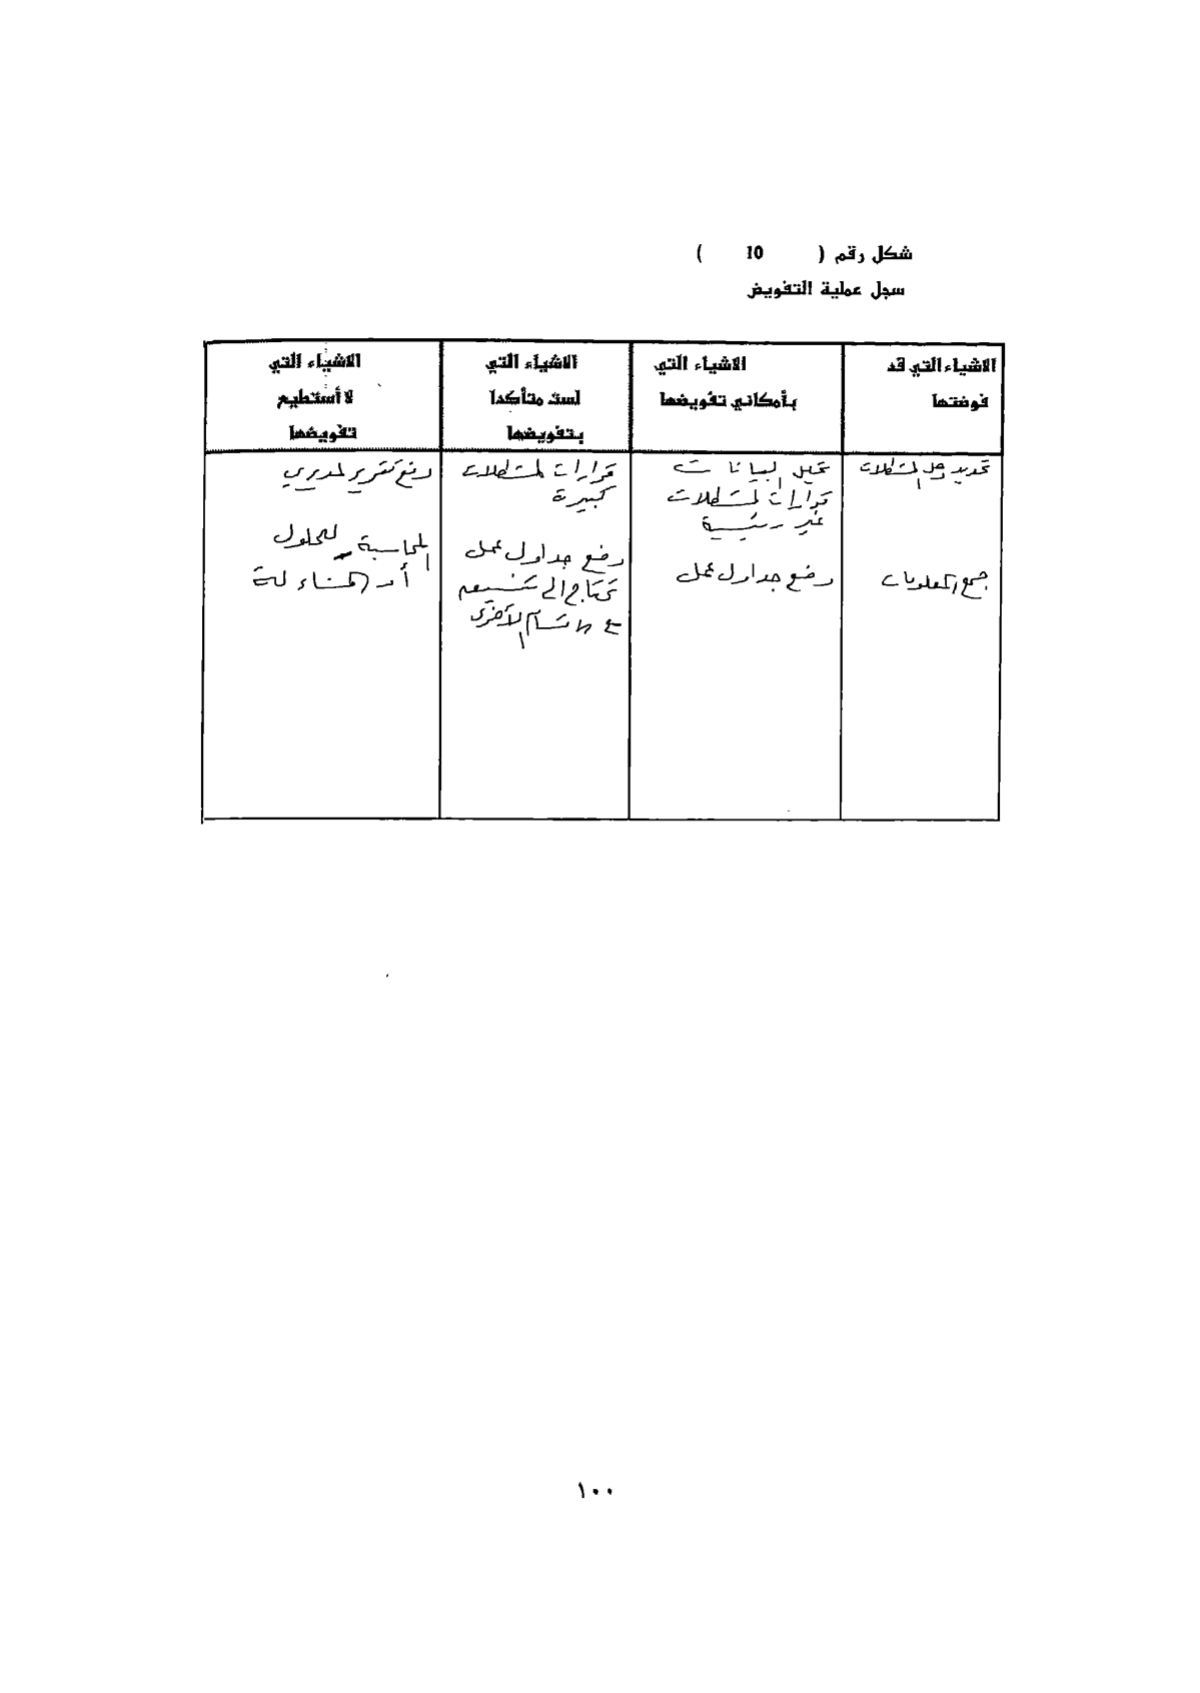 شكل رقم ( 10 )
سجل عملية التفويض
الاشياء التي قد
فوضتها
الاشياء التي
بأمكاني تفويضها
الاشياء التي
لست متأكدا
بتفويضها
الاشياء التي
لا أستطيع
تفويضها
تحديد وحل المشكلات
جمع المعلومات
تحليل البيانات
قرارات لمشكلات
غير رئيسية
وضع جداول عمل
قرارات لمشكلات
كبيرة
وضع جداول عمل
تحتاج الى تنسيق
مع الاقسام الأخرى
رفع تقرير لمديري
المحاسبة للحلول
أو المساءلة
١٠٠